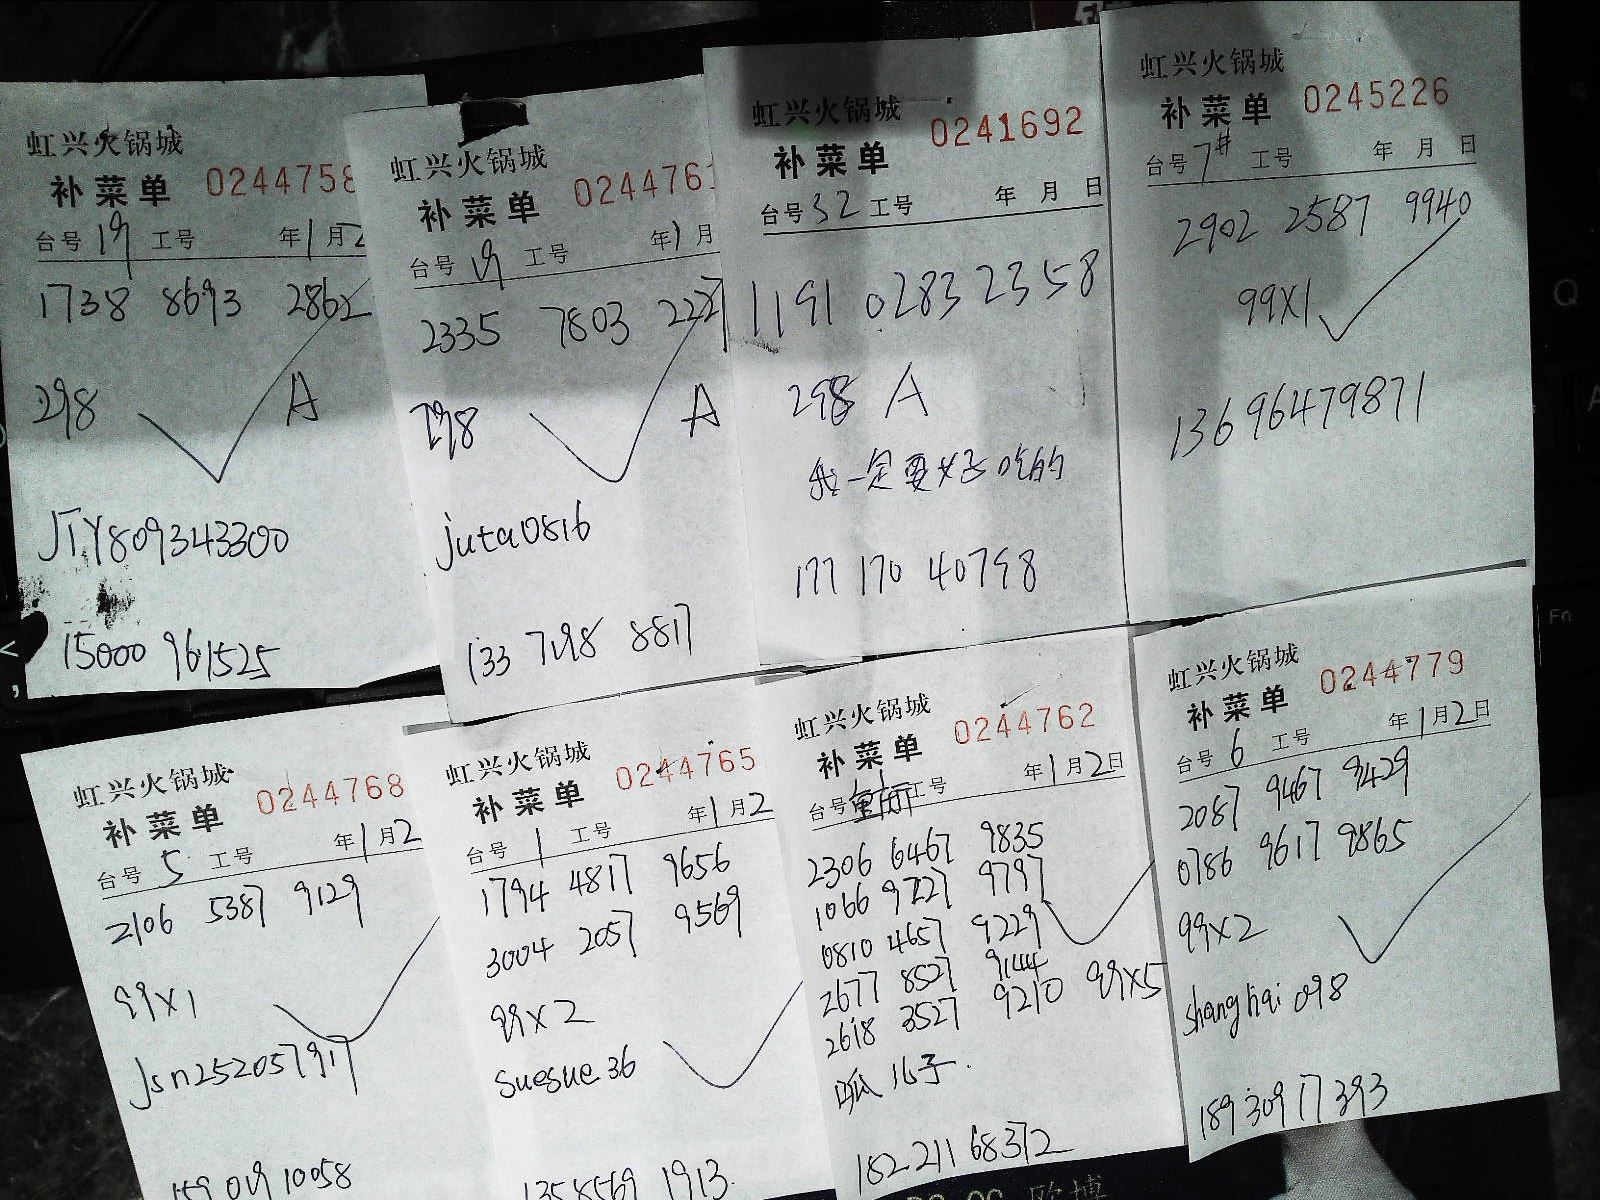 虹兴火锅城
补菜单 0244758
台号 19 工号 年 1 月 2
1738 8693 2862
298 A
JTY809343300
15000 961525
虹兴火锅城
补菜单 024476
台号 19 工号 年 1 月
2335 7803 2227
298 A
juta0816
133 7198 8817
虹兴火锅城
补菜单 0241692
台号 32 工号 年 月 日
1191 0283 2358
298 A
我一定要好吃的
177 170 40798
虹兴火锅城
补菜单 0245226
台号 7# 工号 年 月 日
2902 2587 9940
99X1
13696479871
虹兴火锅城
补菜单 0244768
台号 5 工号 年 1 月 2
2106 5387 9129
99X1
jsn252057917
159 019 10058
虹兴火锅城
补菜单 0244765
台号 1 工号 年 1 月 2
1794 4817 9656
3004 2057 9569
99X2
suesue36
1358569 1913
虹兴火锅城
补菜单 0244762
台号 工号 年 1 月 2 日
2306 6467 9835
1066 9727 9797
0810 4657 9229
2677 8527 9144
2618 3527 9210 99X5
呱儿子.
182 211 68372
虹兴火锅城
补菜单 0244779
台号 6 工号 年 1 月 2 日
2087 9467 9429
0786 9617 9865
99X2
shanghai 098
189 309 17393